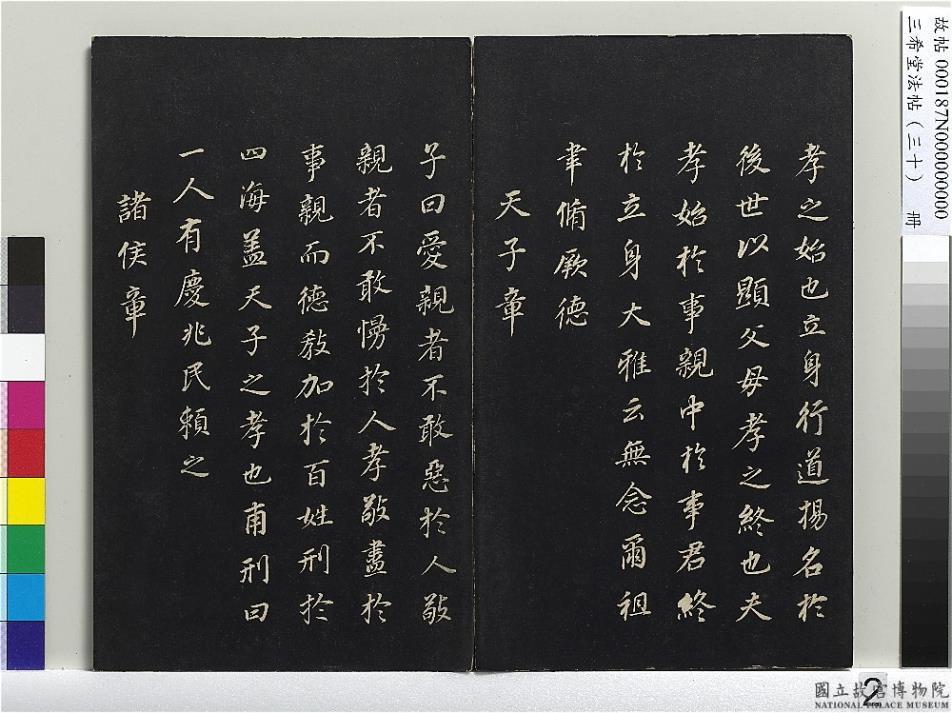 孝之始也立身行道揚名於
後世以顯父母孝之終也夫
孝始於事親中於事君終
於立身大雅云無念爾祖
聿脩厥德
天子章
子曰愛親者不敢惡於人敬
親者不敢慢於人孝敬盡於
事親而德敎加於百姓刑於
四海盖天子之孝也甫刑曰
一人有慶兆民賴之
諸侯章
故帖 000187N000000000
三希堂法帖（三十） 冊
2
國立故宮博物院
NATIONAL PALACE MUSEUM